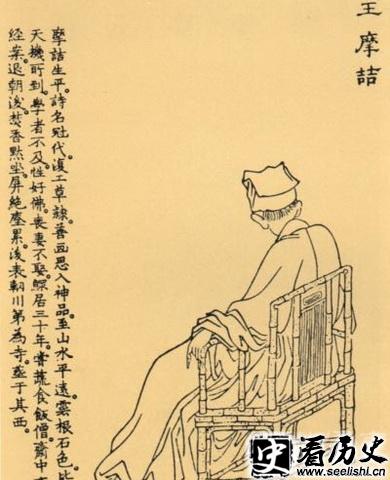 王摩詰
摩詰生平。詩名冠代。復工草隸。善画。思入神品。至山水平遠。雲根石色。
天機所到。學者不及。性好佛。喪妻不娶。鰥居三十年。嘗蔬食飯僧。齋中
經案。退朝後。焚香默坐。屏絕塵累。後表輞川第為寺。葬于其西。
史看历史
www.seelishi.cn